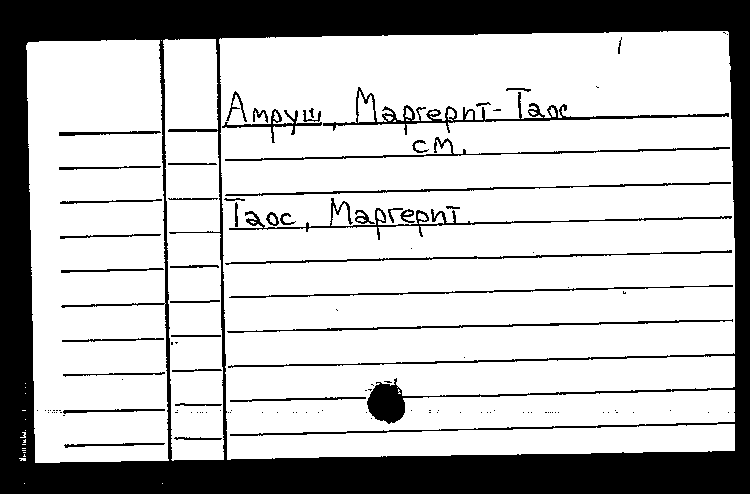 Амруш, Маргерит-Таос
см.
Таос, Маргерит.